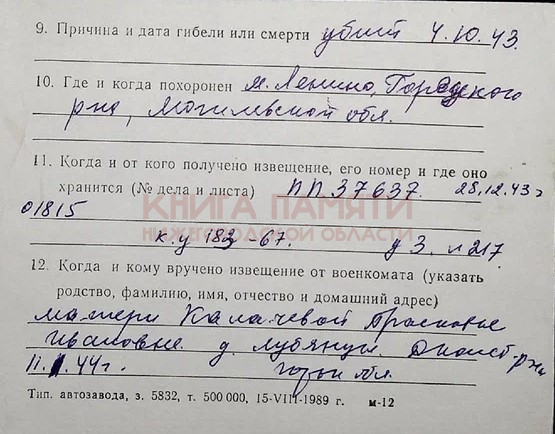 9. Причина и дата гибели или смерти убит 4.10.43.
10. Где и когда похоронен м. Ленино, Горецкого
р-на, Могилевской обл.
11. Когда и от кого получено извещение, его номер и где оно
хранится (№ дела и листа) ПП 37637. 28.12.43 г
01815
КНИГА ПАМЯТИ
НИЖЕГОРОДСКОЙ ОБЛАСТИ
к.у 183-67. д 3. л 217
12. Когда и кому вручено извещение от военкомата (указать
родство, фамилию, имя, отчество и домашний адрес)
матери Калачевой Прасковье
Ивановне д. Лубянцы
44 г. обл.
Тип. автозавода, з. 5832, т. 500 000, 15-VIII-1989 г. м-12